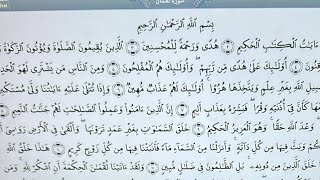 سورة لقمان
بِسْمِ اللَّهِ الرَّحْمَٰنِ الرَّحِيمِ
ءَايَاتُ الْكِتَابِ الْحَكِيمِ ۝ هُدًى وَرَحْمَةً لِّلْمُحْسِنِينَ ۝ الَّذِينَ يُقِيمُونَ الصَّلَوٰةَ وَيُؤْتُونَ الزَّكَوٰةَ
أُولَٰئِكَ عَلَىٰ هُدًى مِّن رَّبِّهِمْ ۖ وَأُولَٰئِكَ هُمُ الْمُفْلِحُونَ ۝ وَمِنَ النَّاسِ مَن يَشْتَرِى لَهْوَ
بِغَيْرِ عِلْمٍ وَيَتَّخِذَهَا هُزُوًا ۚ أُولَٰئِكَ لَهُمْ عَذَابٌ مُّهِينٌ ۝ وَإِذَا تُتْلَىٰ عَلَيْهِ ءَايَاتُنَا وَلَّىٰ
كَأَنَّ فِى أُذُنَيْهِ وَقْرًا ۖ فَبَشِّرْهُ بِعَذَابٍ أَلِيمٍ ۝ إِنَّ الَّذِينَ ءَامَنُوا وَعَمِلُوا الصَّالِحَاتِ لَهُمْ جَنَّاتُ النَّعِيمِ
وَعْدَ اللَّهِ حَقًّا ۚ وَهُوَ الْعَزِيزُ الْحَكِيمُ ۝ خَلَقَ السَّمَاوَاتِ بِغَيْرِ عَمَدٍ تَرَوْنَهَا ۖ وَأَلْقَىٰ فِى الْأَرْضِ رَوَاسِىَ
مِن كُلِّ دَابَّةٍ ۚ وَأَنزَلْنَا مِنَ السَّمَاءِ مَاءً فَأَنبَتْنَا فِيهَا مِن كُلِّ زَوْجٍ كَرِيمٍ ۝
مِن دُونِهِ ۚ بَلِ الظَّالِمُونَ فِى ضَلَالٍ مُّبِينٍ ۝ وَلَقَدْ ءَاتَيْنَا لُقْمَانَ الْحِكْمَةَ أَنِ اشْكُرْ لِلَّهِ ۚ